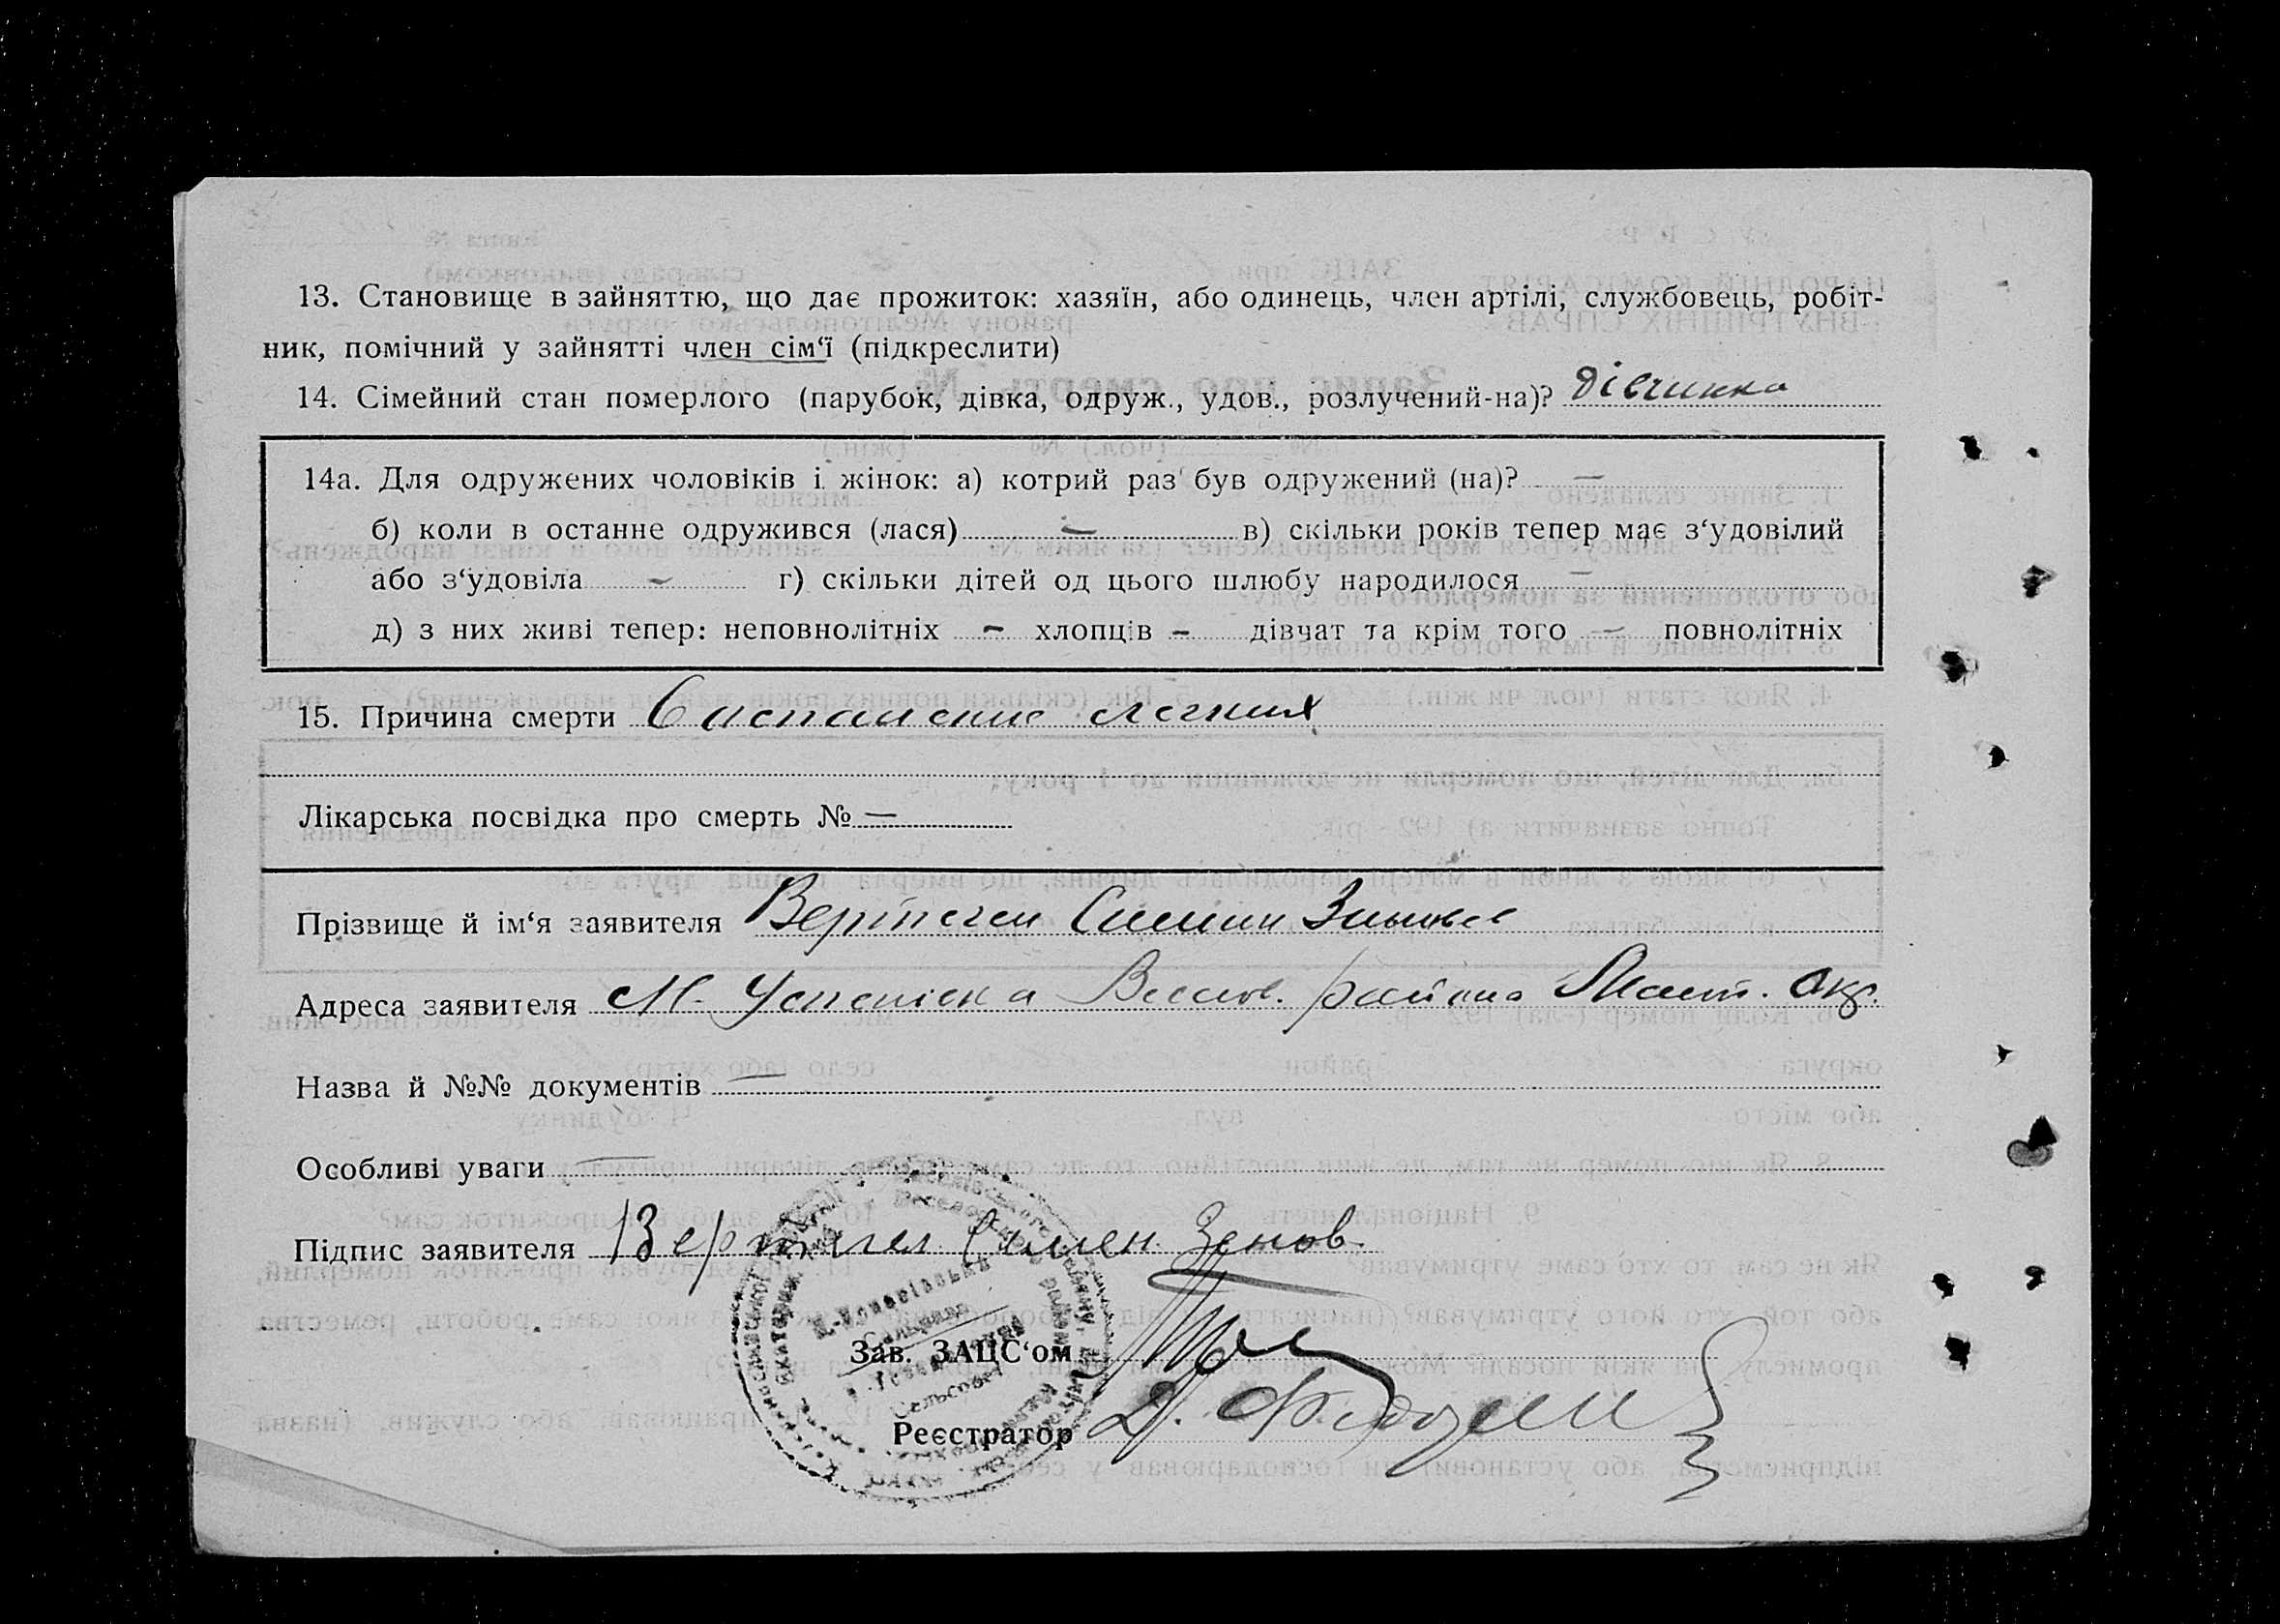 13. Становище в зайняттю, що дає прожиток: хазяїн, або одинець, член артілі, службовець, робіт-
ник, помічний у зайнятті член сім‘ї (підкреслити)
14. Сімейний стан померлого (парубок, дівка, одруж., удов., розлучений-на)? дівчинка
14а. Для одружених чоловіків і жінок: а) котрий раз був одружений (на)? —
б) коли в останне одружився (лася) — в) скільки років тепер має з‘удовілий
або з‘удовіла — г) скільки дітей од цього шлюбу народилося —
д) з них живі тепер: неповнолітніх — хлопців — дівчат та крім того — повнолітніх
15. Причина смерти Воспаление легких
Лікарська посвідка про смерть № —
Прізвище й ім‘я заявителя Вертегел Симон Зиновьев
Адреса заявителя М-Успенівка Весьов. района Меліт. окр.
Назва й №№ документів —
Особливі уваги —
Підпис заявителя Вертегел Семен Зенов
Зав. ЗАЦС‘ом
Реєстратор
Сельсовет